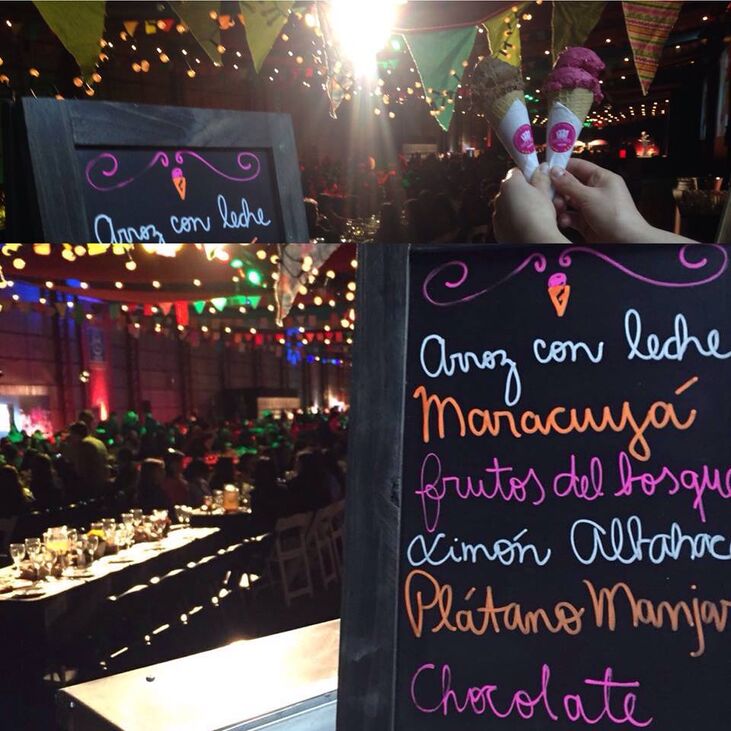 Arroz con leche
Arroz con leche
Maracuyá
frutos del bosque
Limón Albahac
Plátano Manjar
Chocolate